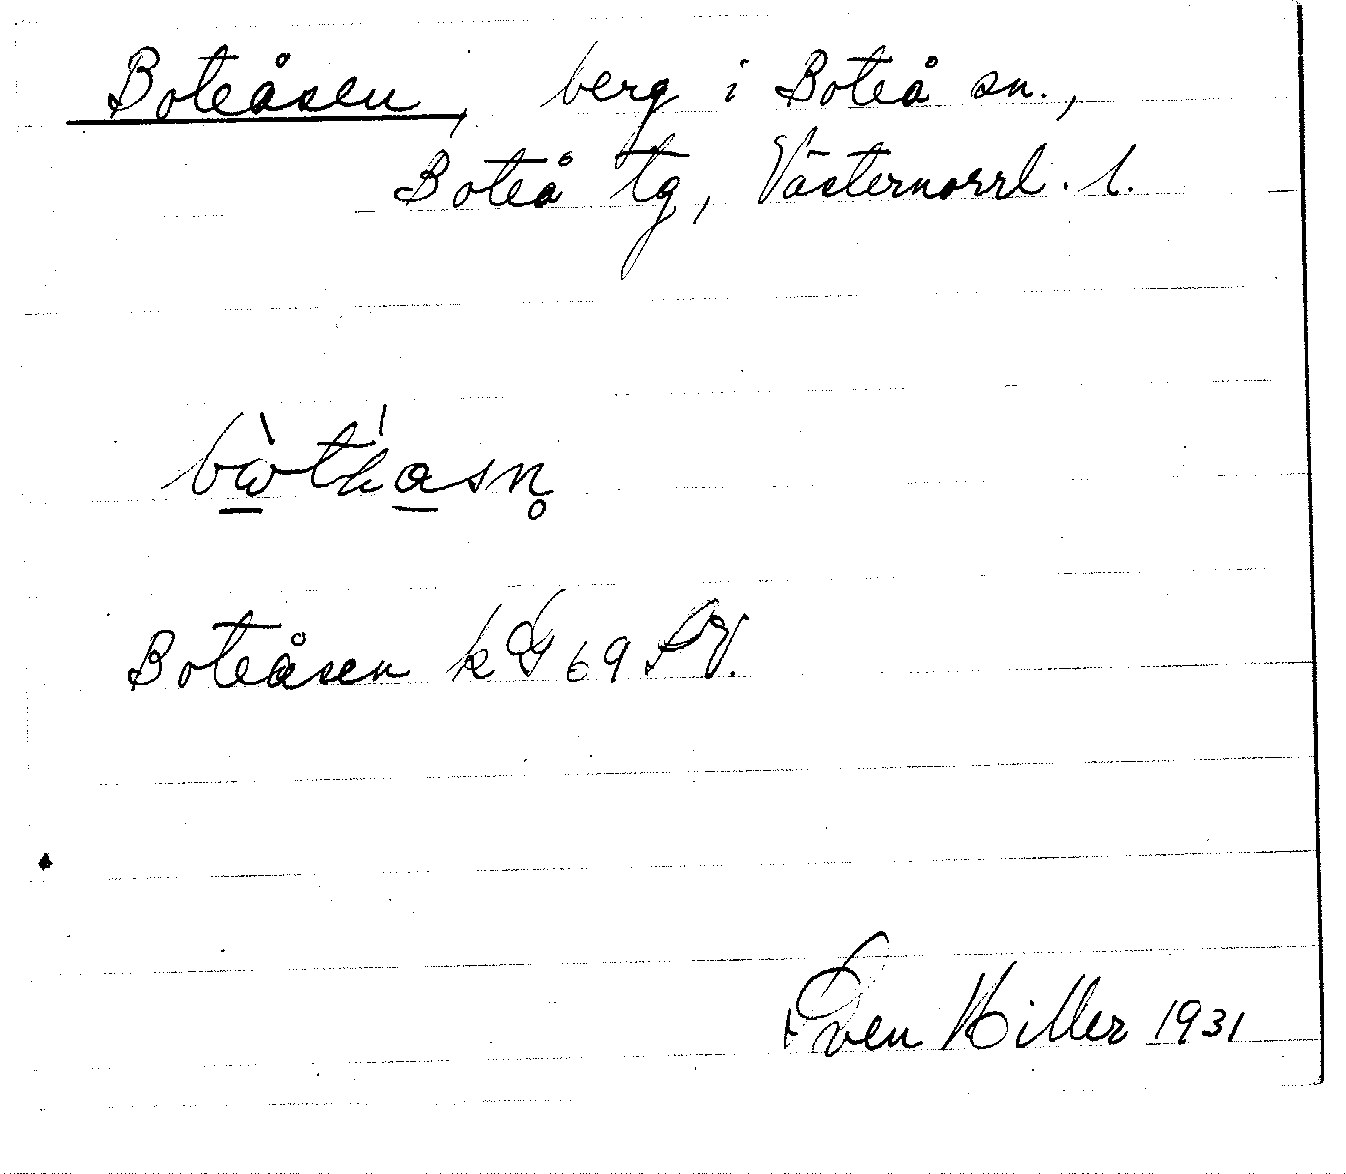 Boteåsen, berg i Boteå sn.,
Boteå tg, Västernorrl. l.
Boteåsen k G 69 SV.
Sven Hiller 1931